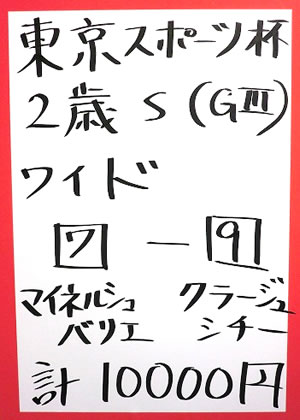 東京スポーツ杯
2歳 S (GⅢ)
ワイド
7 ― 9
マイネルシュバリエ クラージュシチー
計 10000円